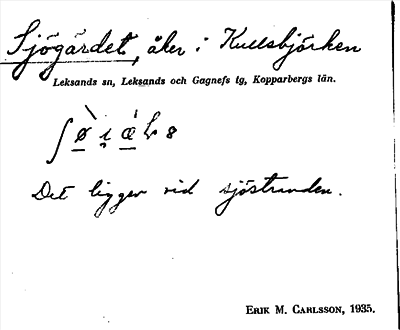 Sjögärdet, åker i Kullsbjörken
Leksands sn, Leksands och Gagnefs tg, Kopparbergs län.
Det ligger vid sjöstranden.
ERIK M. CARLSSON, 1935.